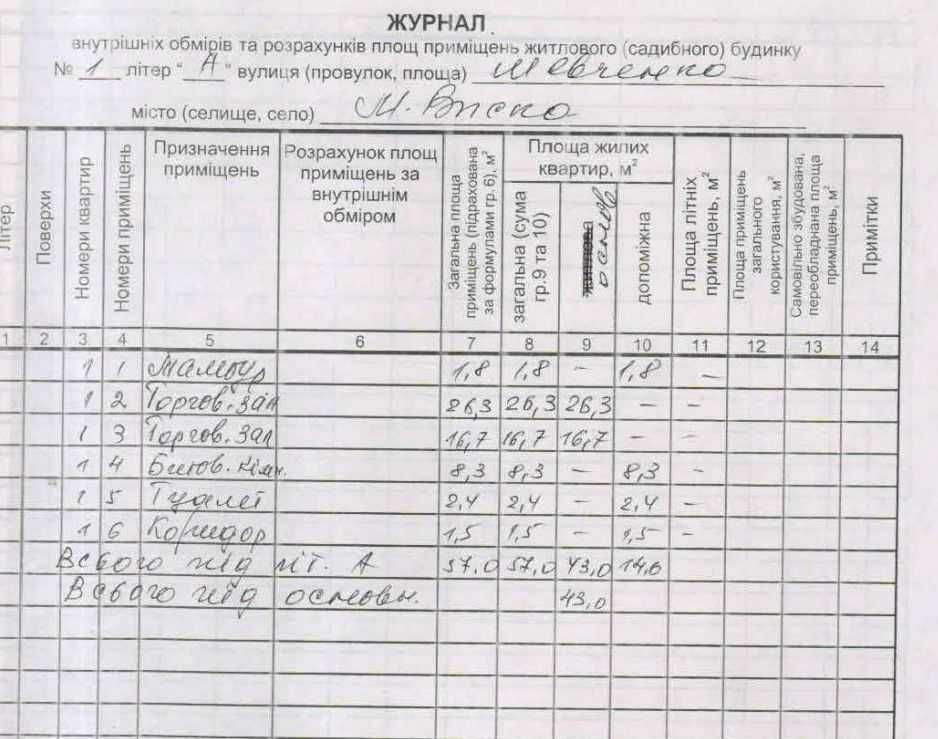 ЖУРНАЛ
внутрішніх обмірів та розрахунків площ приміщень житлового (садибного) будинку
№ 1 літер "А" вулиця (провулок, площа) Шевченко
місто (селище, село) М. Виска
Літер
Поверхи
Номери квартир
Номери приміщень
Призначення приміщень
Розрахунок площ приміщень за внутрішнім обміром
Загальна площа приміщень (підрахована за формулами гр. 6), м²
Площа жилих квартир, м²
загальна (сума гр.9 та 10)
основ
допоміжна
Площа літніх приміщень, м²
Площа приміщень загального користування, м²
Самовільно збудована, переобладнана площа приміщень, м²
Примітки
1 2 3 4 5 6 7 8 9 10 11 12 13 14
1 1 Тамбур 1,8 1,8 – 1,8 –
1 2 Торгов. зал 26,3 26,3 26,3 – –
1 3 Торгов. зал 16,7 16,7 16,7 – –
1 4 Битов. кімн. 8,3 8,3 – 8,3 –
1 5 Туалет 2,4 2,4 – 2,4 –
1 6 Коридор 1,5 1,5 – 1,5 –
Всього під літ. А 57,0 57,0 43,0 14,0
Всього під основн. 43,0